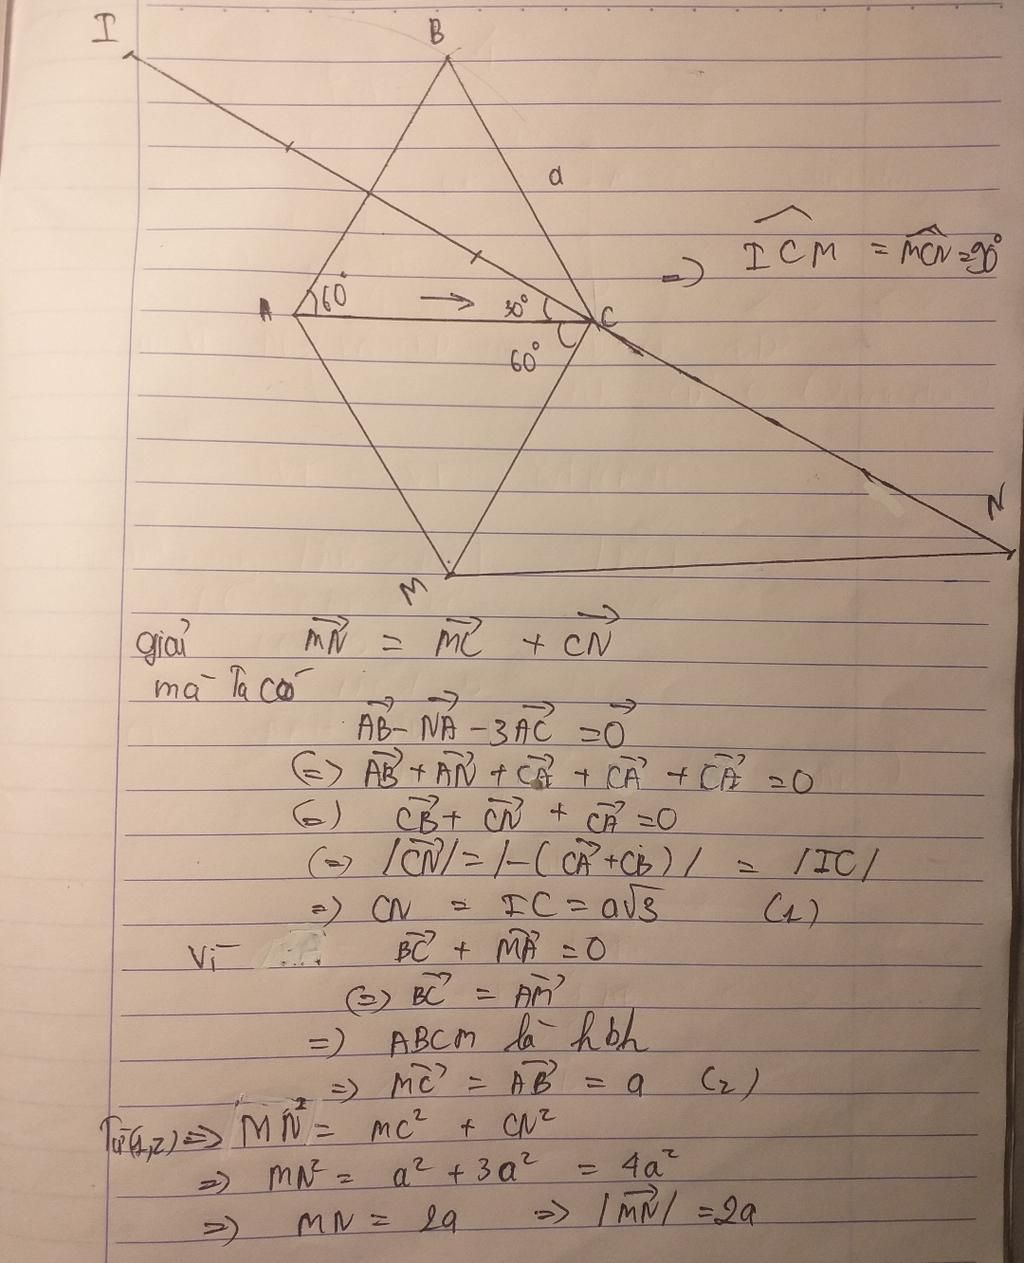 I
B
a
=> ICM = MCN = 90°
A 60° → 30° C
60°
N
M
giải MN = MC + CN
mà Ta có
AB - NA - 3AC = 0
(=) AB + AN + CA + CA + CA = 0
(=) CB + CN + CA = 0
(=) |CN| = |-(CA + CB)| = |IC|
=> CN = IC = a√3 (1)
Vì BC + MA = 0
(=) BC = AM
=> ABCM là hbh
=> MC = AB = a (2)
Từ(1,2) => MN² = MC² + CN²
=> MN² = a² + 3a² = 4a²
=> MN = 2a => |MN| = 2a